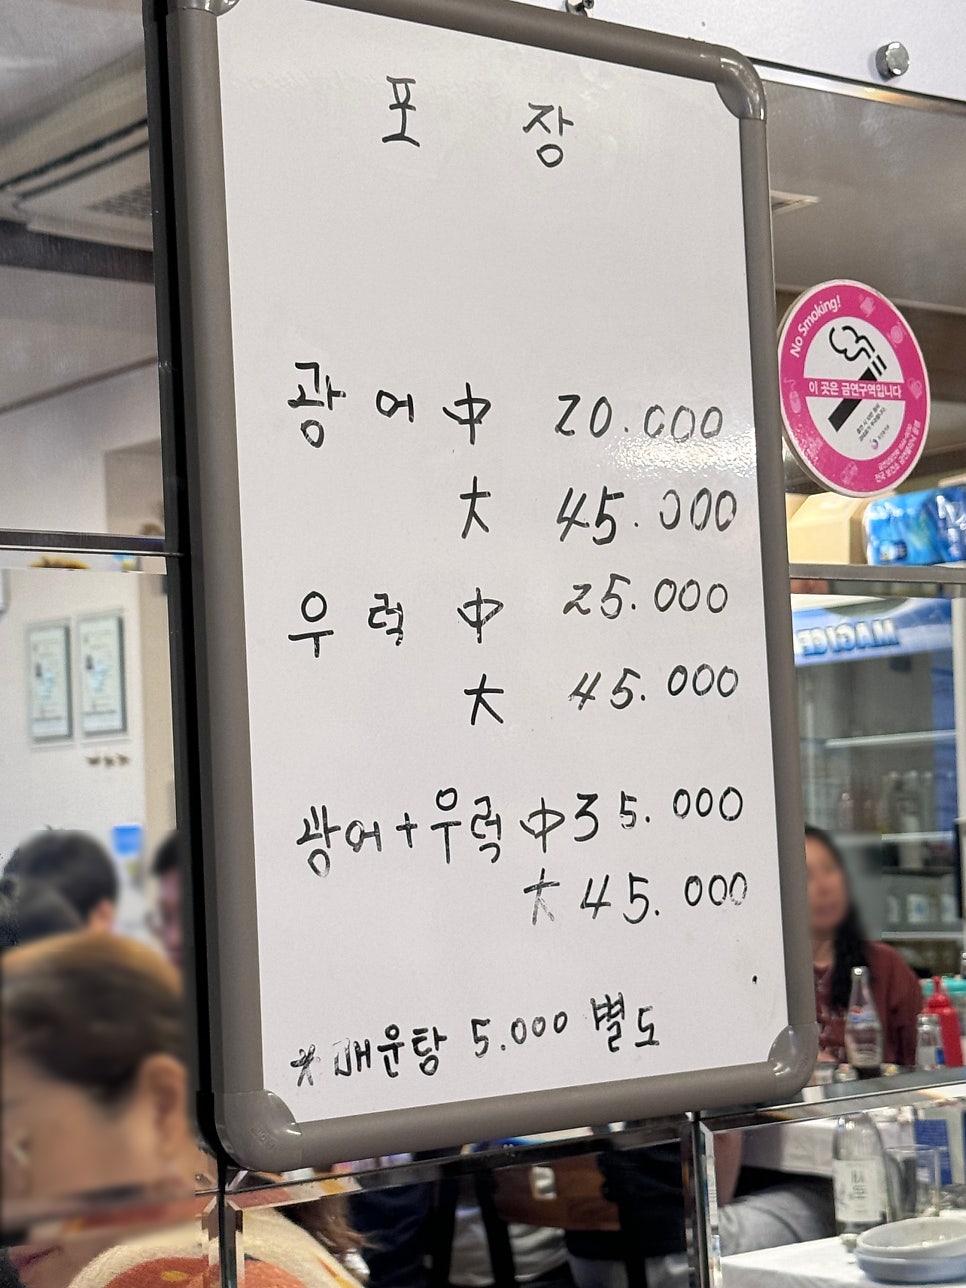 포 장
광 어 中 20.000
大 45.000
우 럭 中 25.000
大 45.000
광어+우럭 中 35.000
大 45.000
* 매운탕 5.000 별도
No Smoking!
이 곳은 금연구역입니다